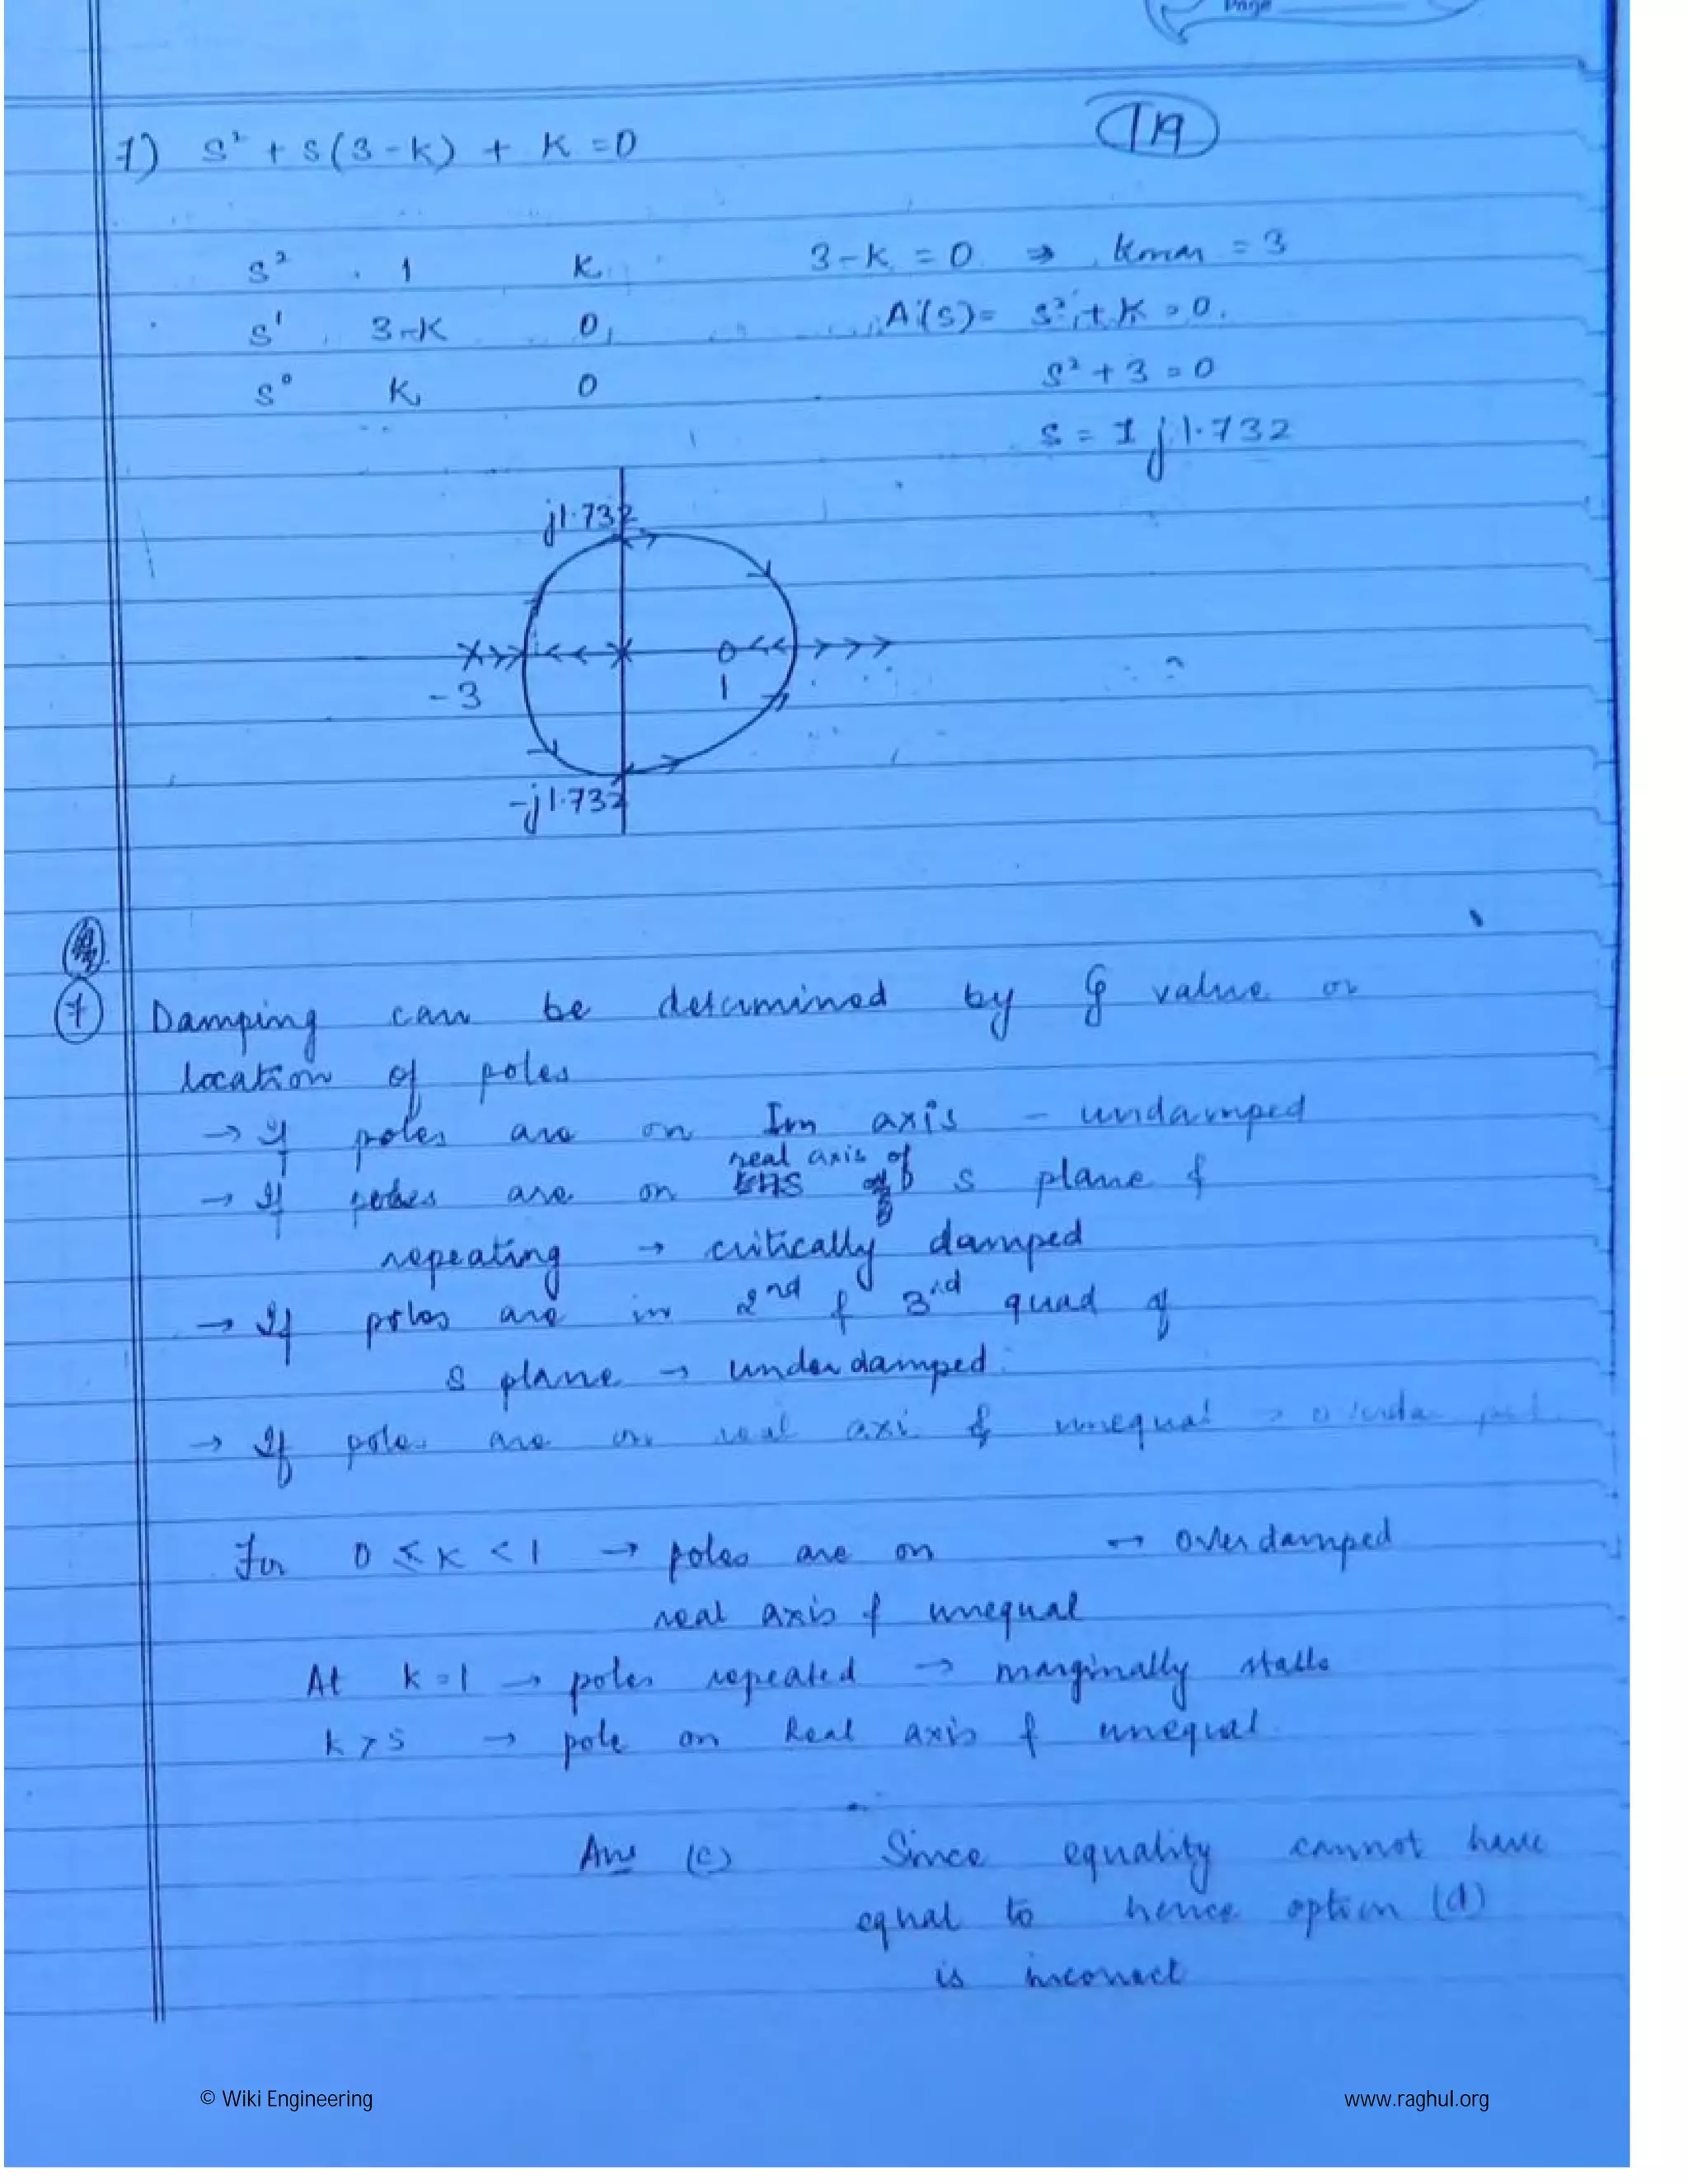 Page
119
7) s² + s(3-k) + K = 0
s² 1 K 3-K = 0 ⇒ Kmax = 3
s¹ 3-K 0 A(s) = s² + K = 0.
s⁰ K 0 s² + 3 = 0
s = ± j 1.732
j1.732
-3 1
-j1.732
7 Damping can be determined by ξ value or
location of poles
→ If poles are on Im axis - undamped
real axis of
→ If poles are on s plane &
repeating → critically damped
→ If poles are in 2nd & 3rd quad of
s plane → underdamped
→ If poles are on real axis & unequal →
For 0 ≤ K < 1 → poles are on → overdamped
real axis & unequal
At k = 1 → poles repeated → marginally stable
k > 5 → pole on Real axis & unequal
Ans (c) Since equality cannot have
equal to hence option (d)
is incorrect
© Wiki Engineering www.raghul.org